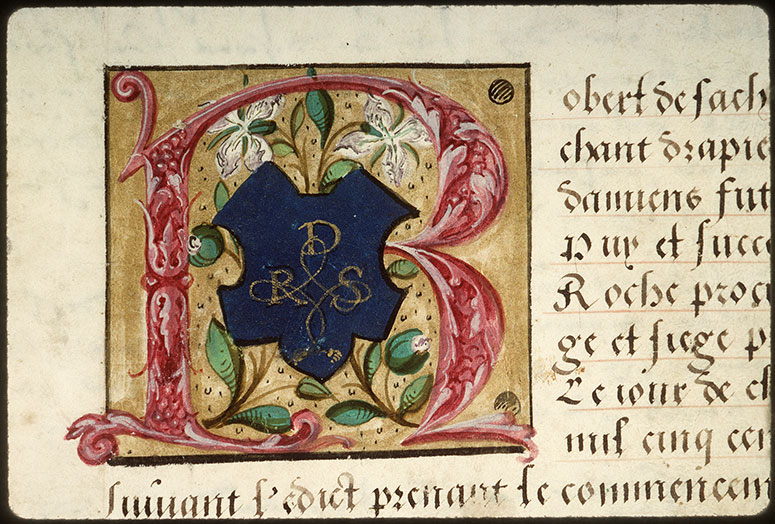 R
D
R S
obert de sach
chant drapie
damiens fut
Puy et succ
Roche procu
ge et siege p
Le iour de ch
mil cinq cen
suiuant l'edict prenant le commencem